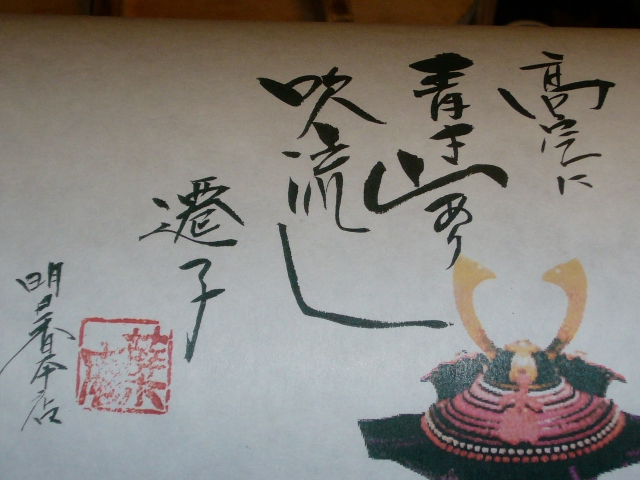 高空に
青き山あり
吹流し
遷子
明日香本店